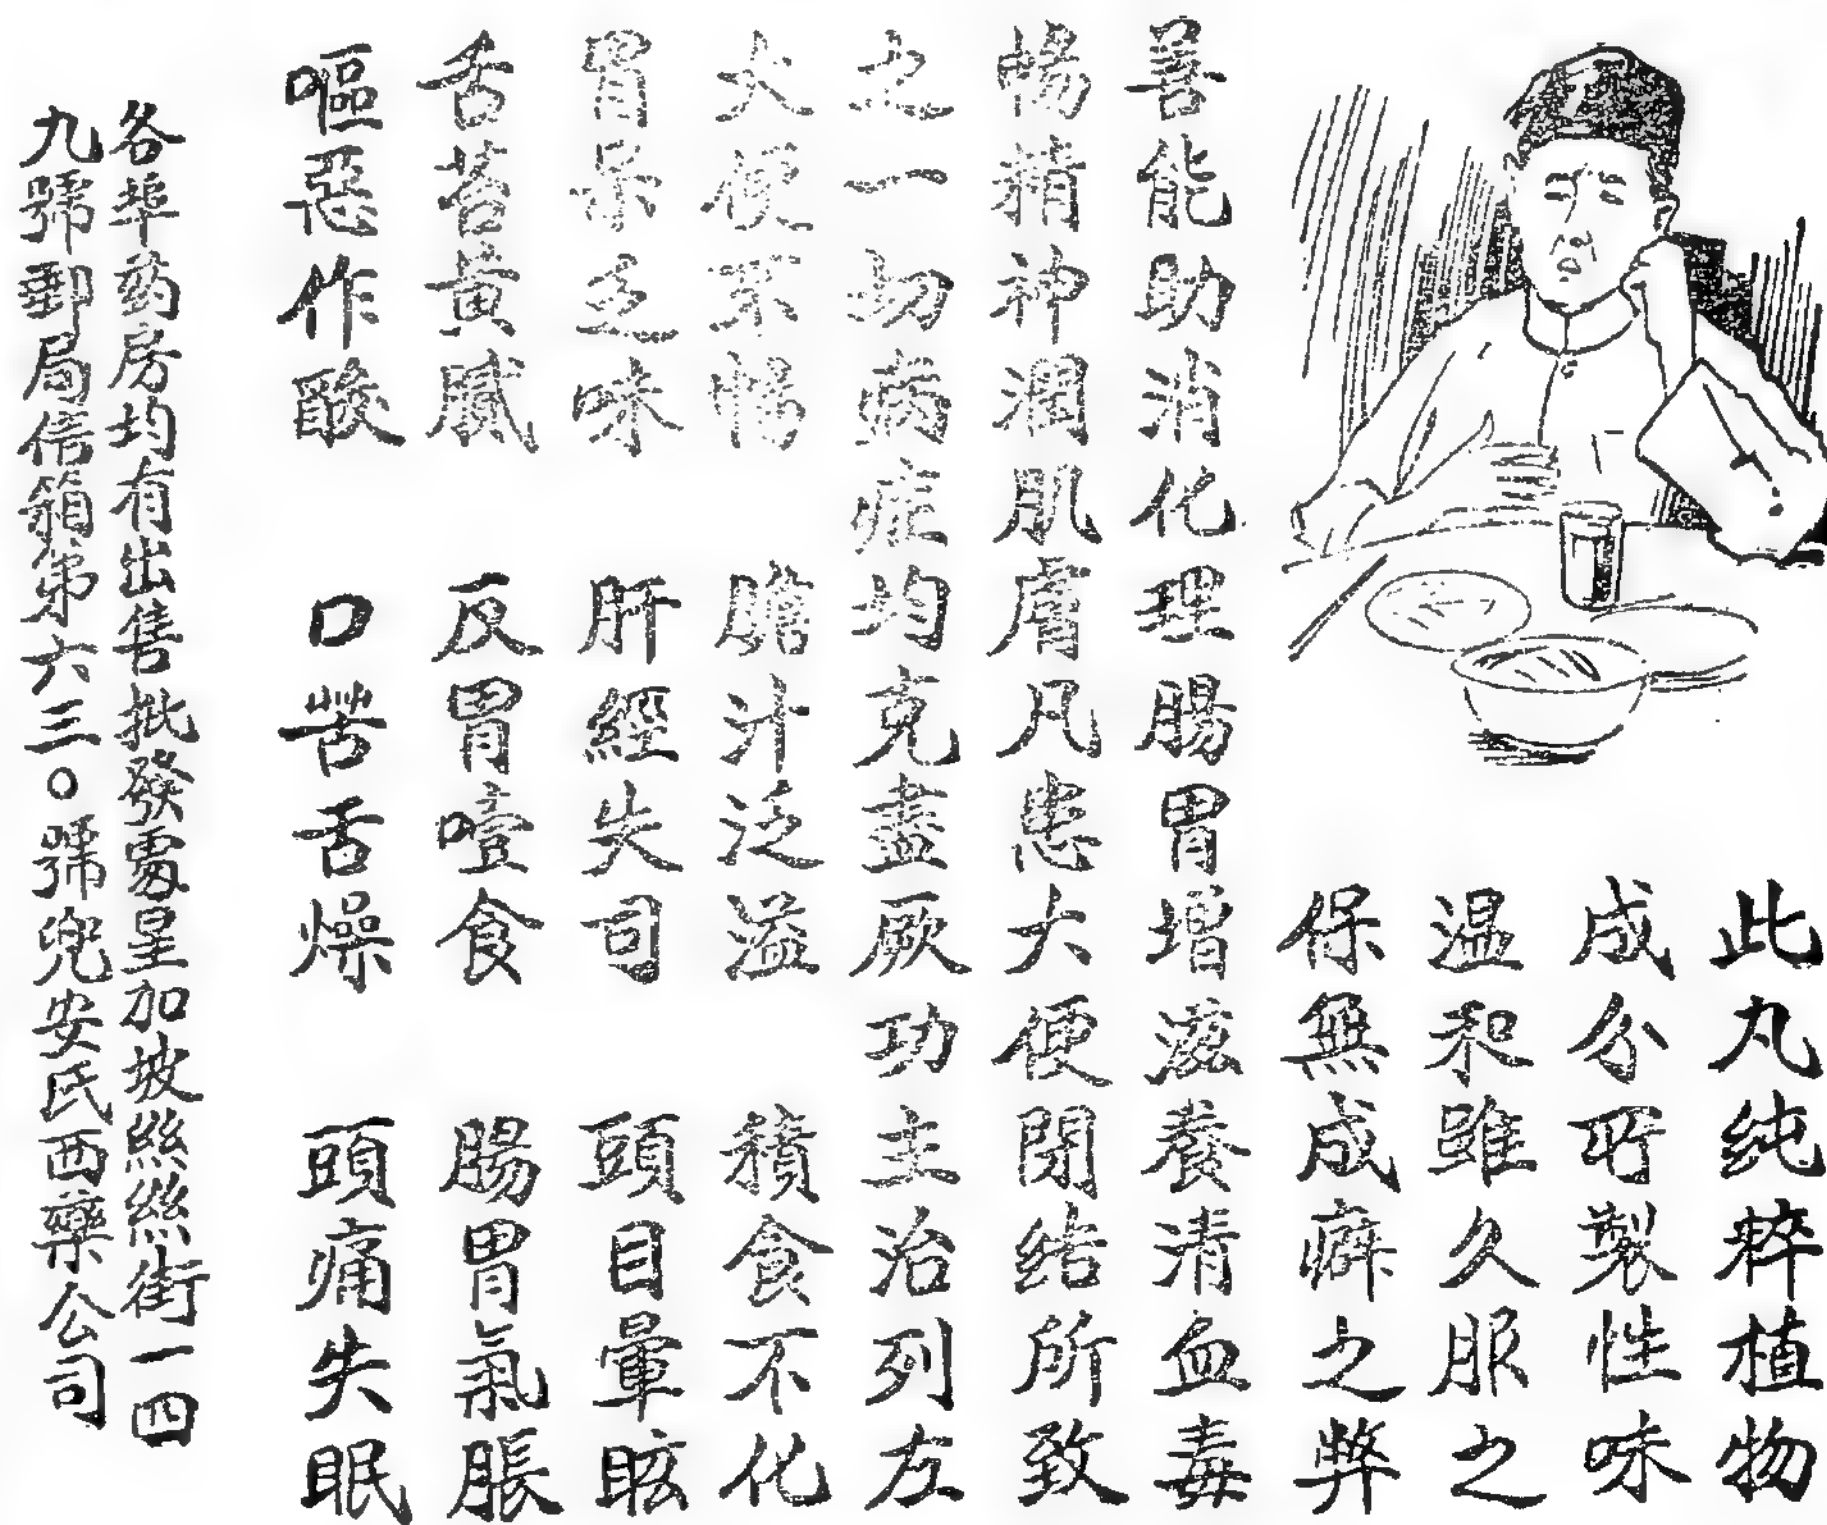 此丸纯粹植物
成分所製性味
温和雖久服之
保無成癖之弊
善能助消化理腸胃增滋養清血毒
暢精神潤肌膚凡患大便閉结所致
之一切病症均克盡厥功主治列左
大便不暢 膽汁泛溢 積食不化
胃呆乏味 肝經失司 頭目暈眩
舌苔黃膩 反胃噎食 腸胃氣脹
嘔惡作酸 口苦舌燥 頭痛失眠
各埠药房均有出售批發處星加坡絲絲街一四
九號郵局信箱第六三〇號兜安氏西藥公司